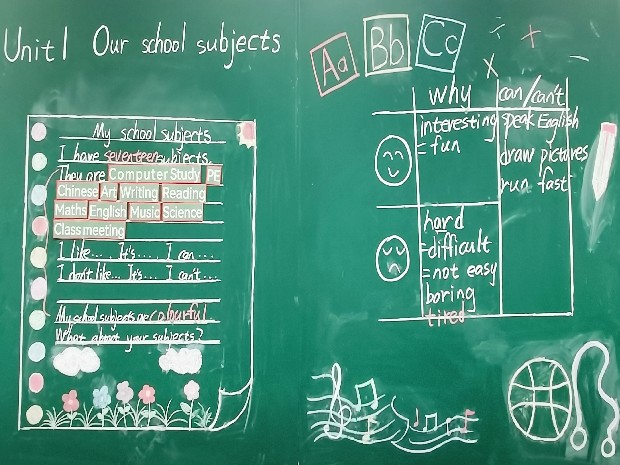 Unit1 Our school subjects
My school subjects
I have seventeen subjects.
They are Computer Study PE
Chinese Art Writing Reading
Maths English Music Science
Class meeting
I like... It's.... I can...
I don't like... It's.... I can't...
My school subjects are colourful.
What about your subjects?
Aa Bb Cc
÷ + × −
why can/can't
interesting speak English
= fun
draw pictures
run fast
hard
=difficult
=not easy
boring
tired